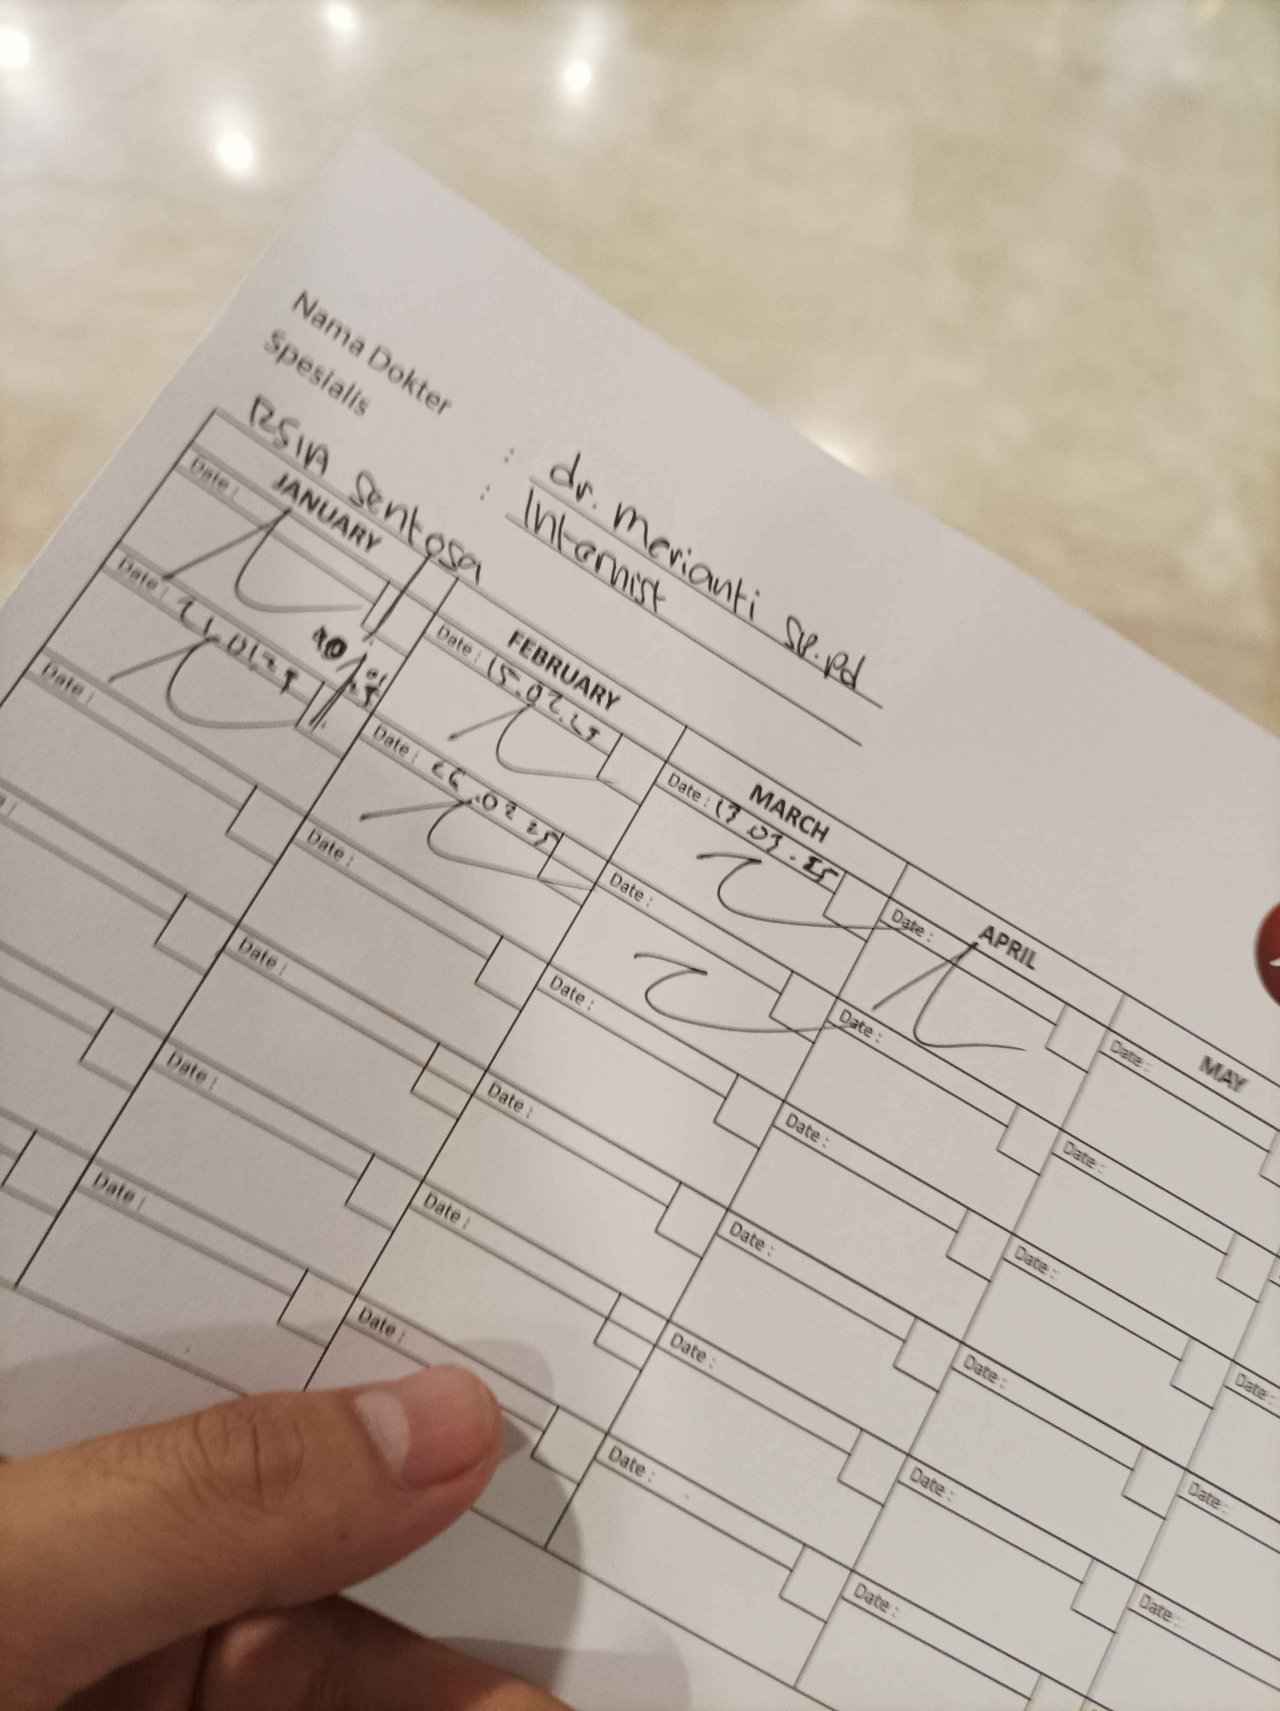 Nama Dokter : dr. Merianti Sp.Pd
Spesialis : Internist
RSIA Sentosa
JANUARY FEBRUARY MARCH APRIL MAY
Date : Date : 15.02.25 Date : 13.03.25 Date : Date :
Date : 21.01.25 Date : 26.02.25 Date : Date : Date :
Date : Date : Date : Date : Date :
Date : Date : Date : Date :
Date : Date : Date : Date :
Date : Date : Date : Date :